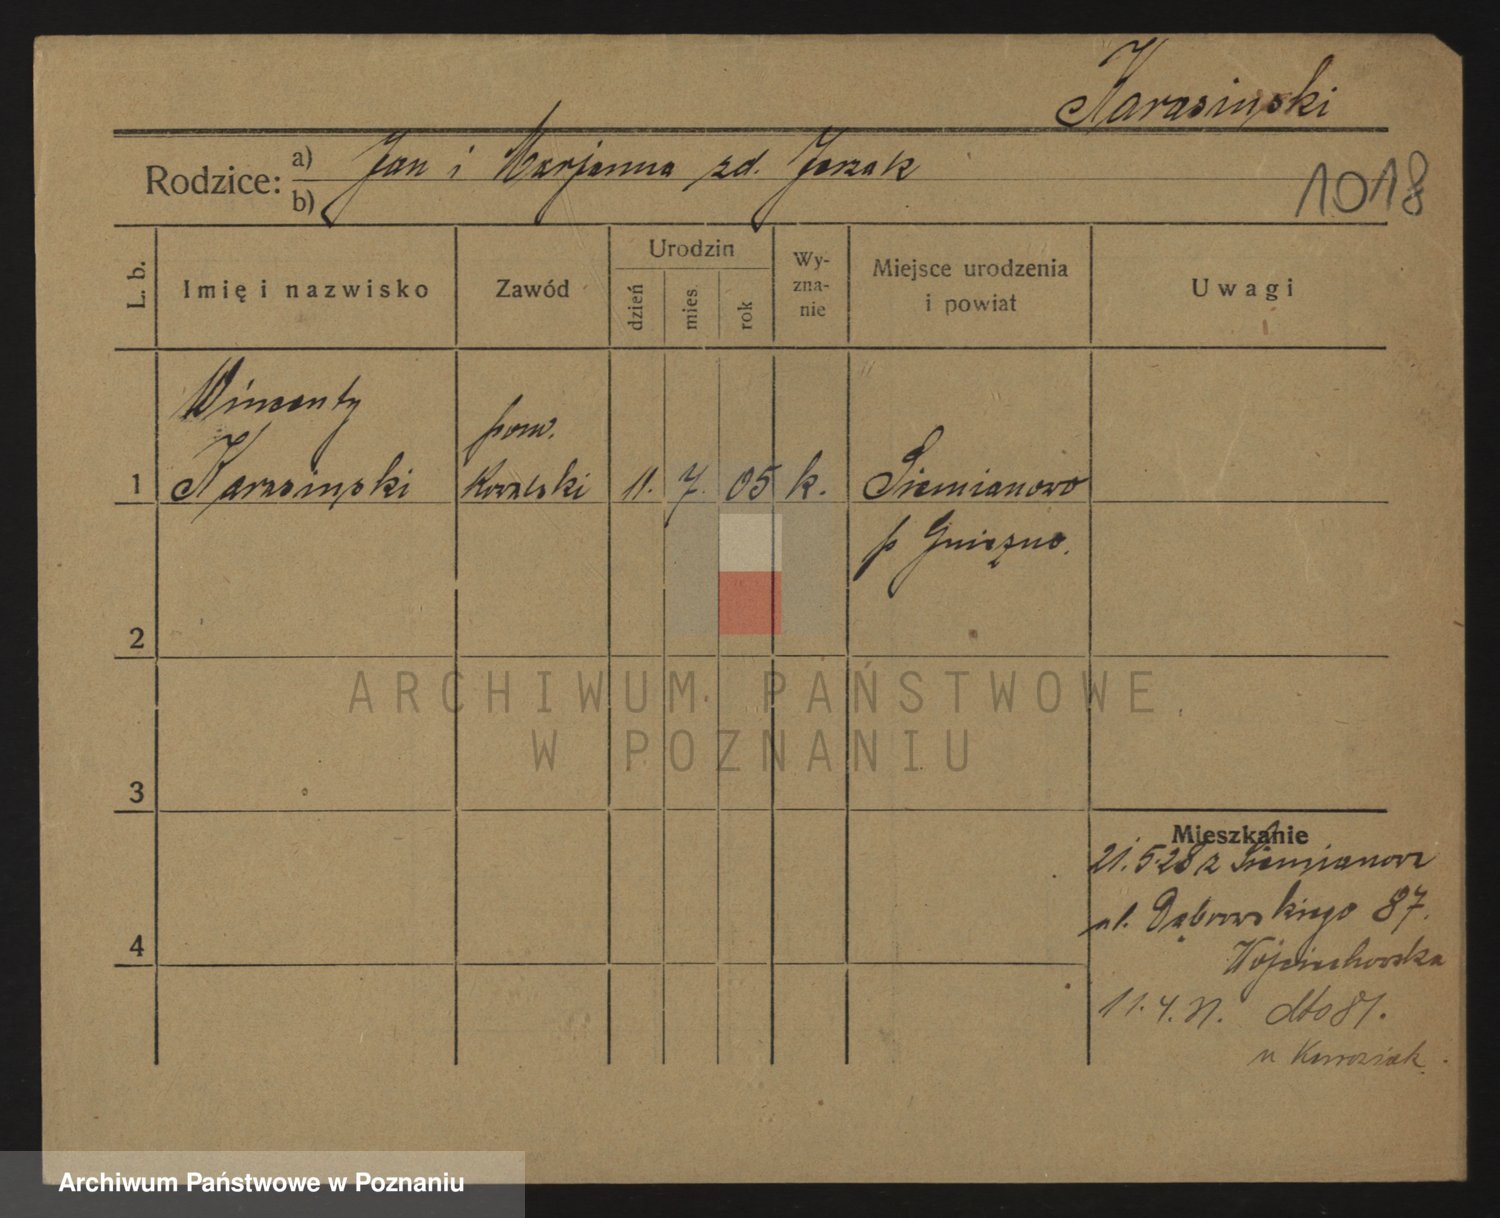 Karasiński
Rodzice: a) Jan i Marjanna zd. Jerzak
b)
1018
L. b.
Imię i nazwisko
Zawód
Urodzin
dzień
mies.
rok
Wy-
zna-
nie
Miejsce urodzenia
i powiat
Uwagi
Wincenty pom.
1 Karasiński kowalski 11. 7. 05 k. Siemianowo
p Gniezno.
2
ARCHIWUM PAŃSTWOWE
W POZNANIU
3
Mieszkanie
21.5.28 z Siemianowa
ul. Dąbrowskiego 87.
Wojciechowska
4
11.4. dto 81.
u
Archiwum Państwowe w Poznaniu